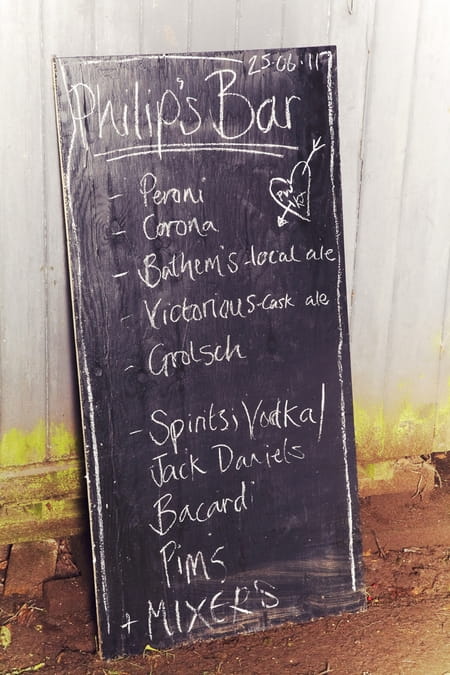 25.06.11
Philip's Bar
- Peroni
- Corona
- Bathem's-local ale
- Victorious-Cask ale
- Grolsch
- Spirits; Vodka/
Jack Daniels
Bacardi
Pims
+ MIXERS